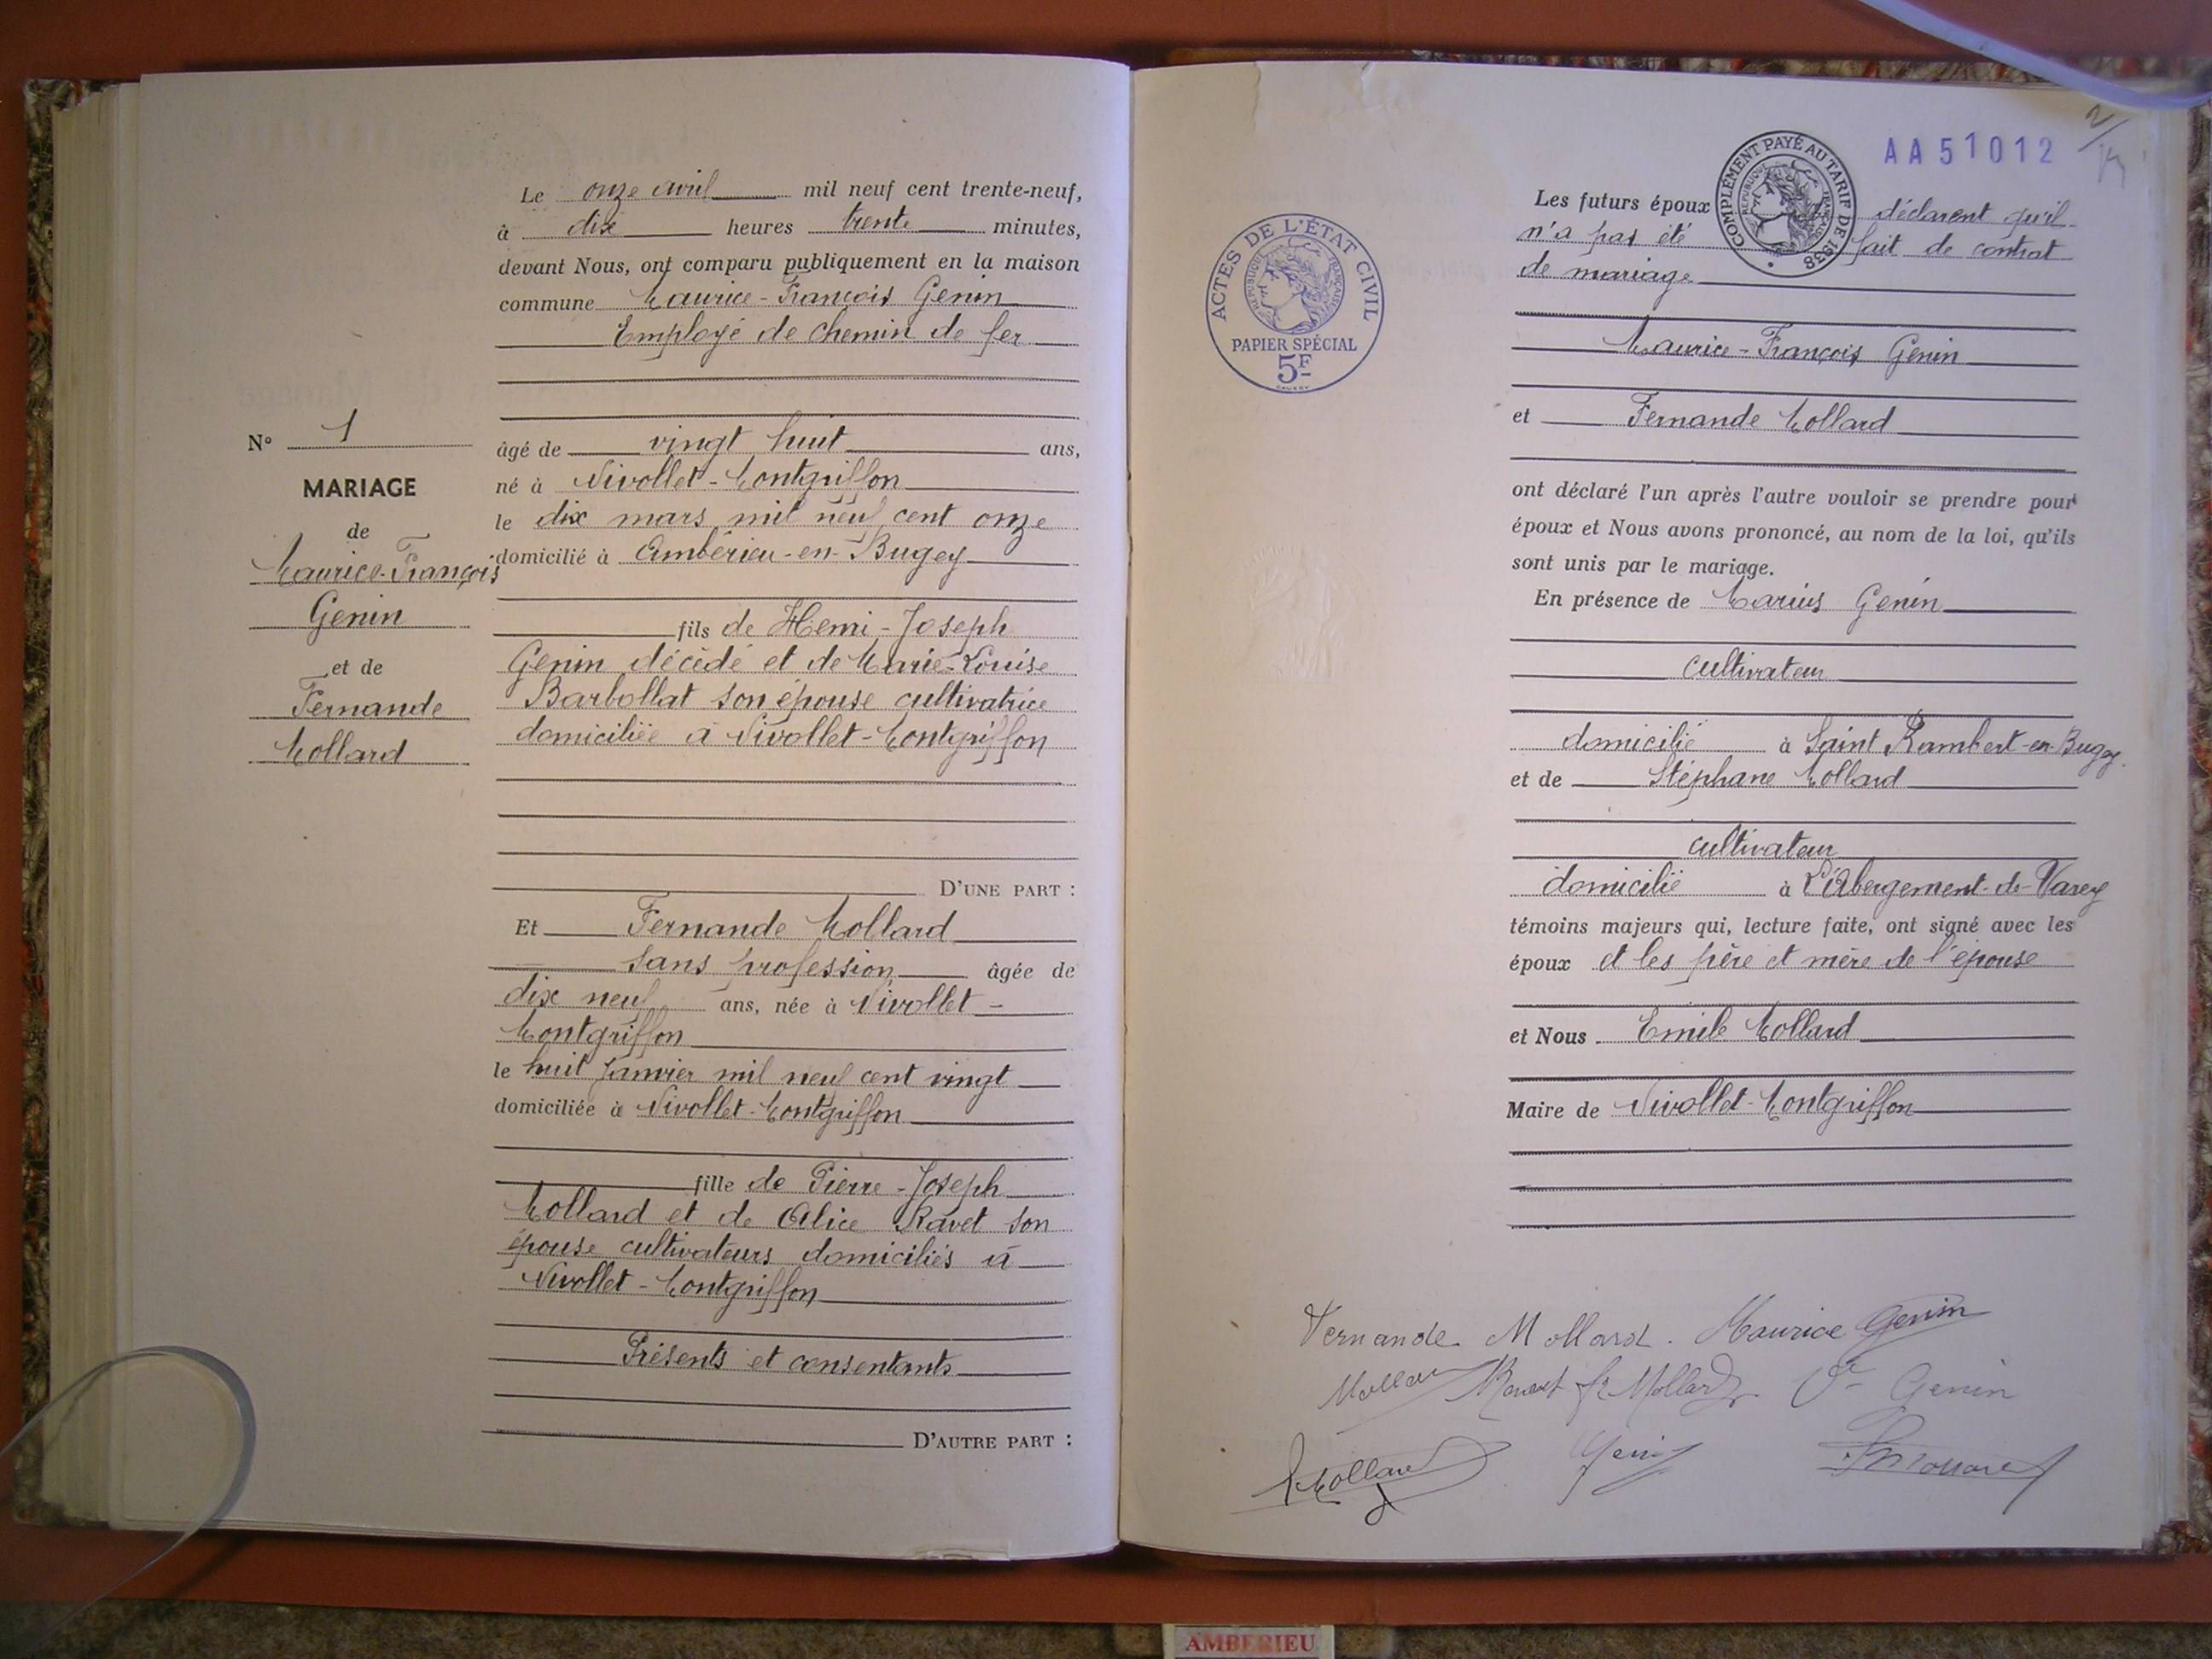 Le onze avril mil neuf cent trente-neuf,
à dix heures trente minutes,
devant Nous, ont comparu publiquement en la maison
commune Maurice-François Genin
Employé de chemin de fer
âgé de vingt huit ans,
né à Nivollet-Montgriffon
le dix mars mil neuf cent onze
domicilié à Ambérieu-en-Bugey
fils de Henri-Joseph
Genin décédé et de Marie-Louise
Barbollat son épouse cultivatrice
domiciliée à Nivollet-Montgriffon
D'UNE PART :
Et Fernande Mollard
sans profession âgée de
dix neuf ans, née à Nivollet-
Montgriffon
le huit Janvier mil neuf cent vingt
domiciliée à Nivollet-Montgriffon
fille de Pierre-Joseph
Mollard et de Alice Ravet son
épouse cultivateurs domiciliés à
Nivollet-Montgriffon
Présents et consentants
D'AUTRE PART :
N° 1
MARIAGE
de
Maurice-François
Genin
et de
Fernande
Mollard
AA51012
COMPLÉMENT PAYÉ AU TARIF DE 1938
RÉPUBLIQUE FRANÇAISE
ACTES DE L'ÉTAT CIVIL
RÉPUBLIQUE FRANÇAISE
PAPIER SPÉCIAL
5F
Les futurs époux déclarent qu'il
n'a pas été fait de contrat
de mariage
Maurice-François Genin
et Fernande Mollard
ont déclaré l'un après l'autre vouloir se prendre pour
époux et Nous avons prononcé, au nom de la loi, qu'ils
sont unis par le mariage.
En présence de Marius Genin
cultivateur
domicilié à Saint Rambert-en-Bugey.
et de Stéphane Mollard
cultivateur
domicilié à L'Abergement-de-Varey
témoins majeurs qui, lecture faite, ont signé avec les
époux et les père et mère de l'épouse
et Nous Emile Mollard
Maire de Nivollet-Montgriffon
Fernande Mollard. Maurice Genin
Mollard Mollard Ve Genin
Mollard Genin
AMBERIEU